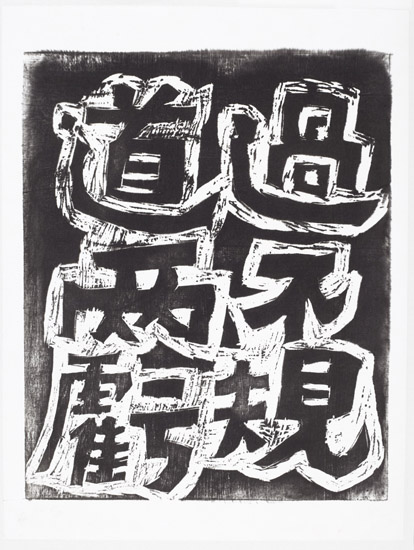 過不規
道兩虧